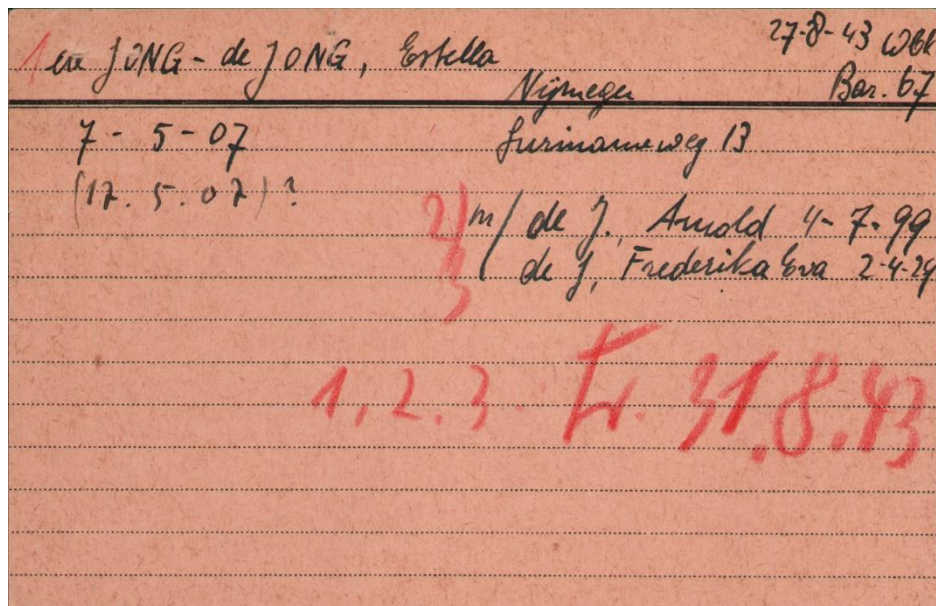 27-8-43 Wbk
1 de JONG - de JONG, Estella
Nijmegen Bar. 67
7 - 5 - 07 Surinameweg 13
(17. 5. 07) ?
2) m/ de J., Arnold 4-7-99
3 de J, Frederika Eva 2-4-29
1, 2. 3. Tr. 31.8.43